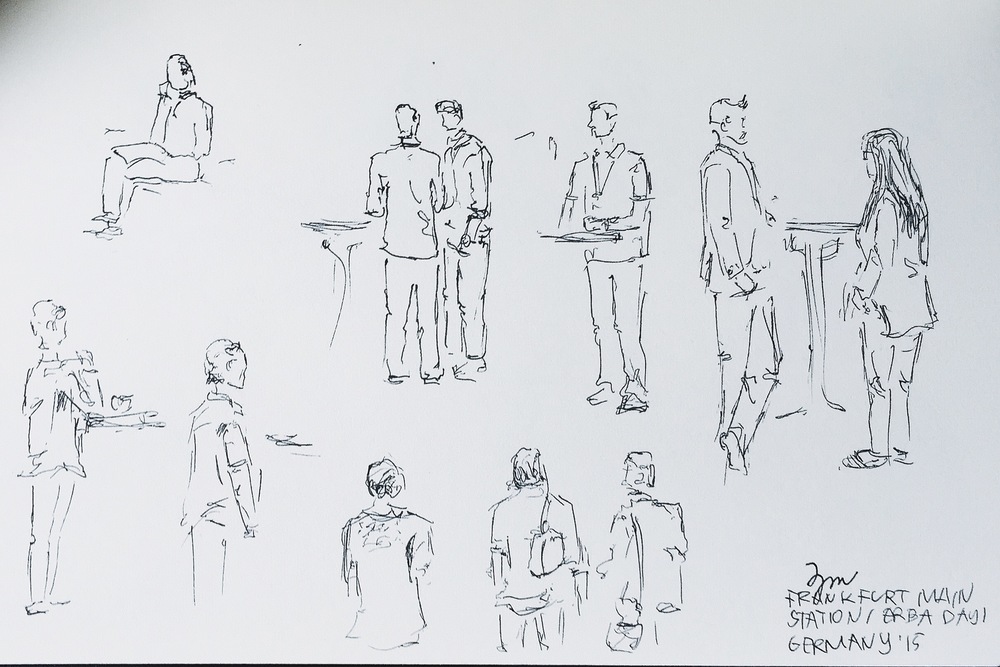 FRANKFURT MAIN
STATION / ERBA DAY 1
GERMANY '15